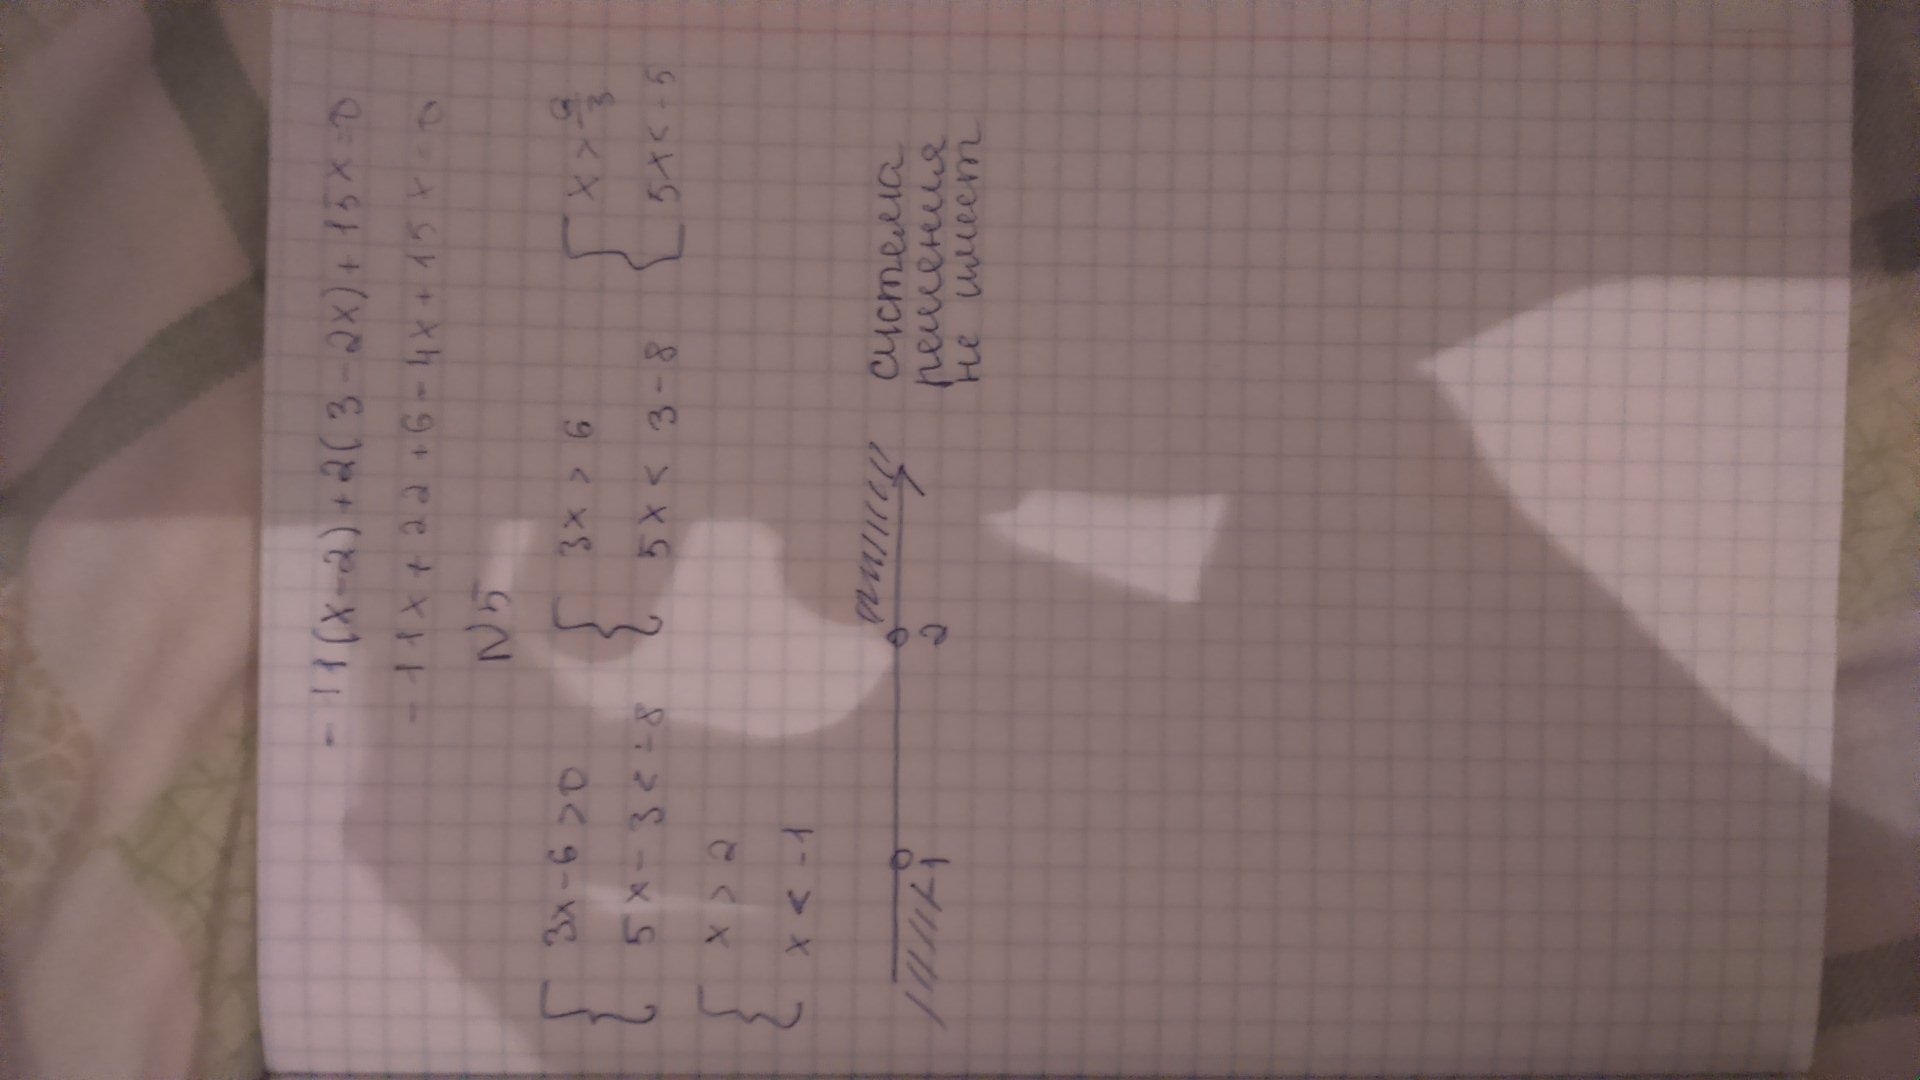 -11(x-2)+2(3-2x)+15x=0
-11x+22+6-4x+15x=0
N5
{3x-6>0 {3x>6 {x>6/3
{5x-3<-8 {5x<3-8 {5x<-5
{x>2
{x<-1
-1 2 система
решения
не имеет